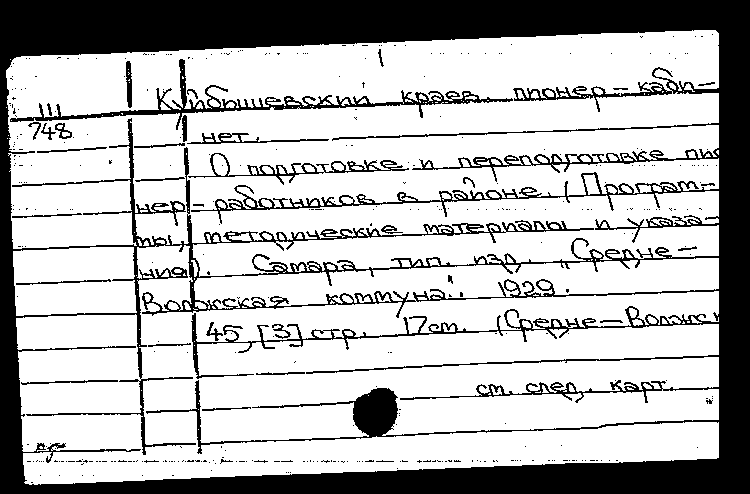 1
Куйбышевский краев. пионер-каби-
III
748
нет.
О подготовке и переподготовке пио
нер-работников в районе. (Програм-
мы, методические материалы и указа-
ния). Самара, тип. изд. „Средне-
Волжская коммуна". 1929.
45, [3] стр. 17см. (Средне-Волжск
см. след. карт.